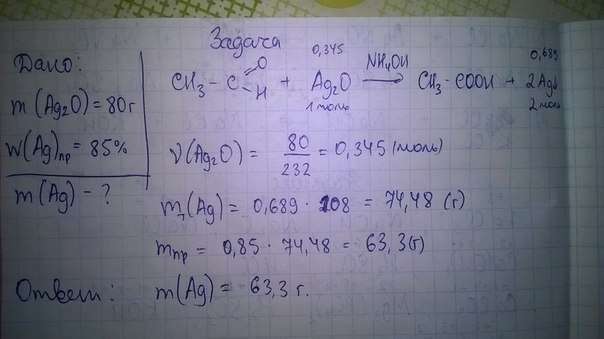 Задача
Дано:
m(Ag₂O) = 80г
W(Ag)пр = 85%
m(Ag) - ?
0,345 0,689
CH₃ - C =O - H + Ag₂O NH₄OH → CH₃ - COOH + 2Ag↓
1 моль 2 моль
ν(Ag₂O) = 80/232 = 0,345 (моль)
mт(Ag) = 0,689 · 108 = 74,48 (г)
mпр = 0,85 · 74,48 = 63,3(г)
Ответ: m(Ag) = 63,3 г.